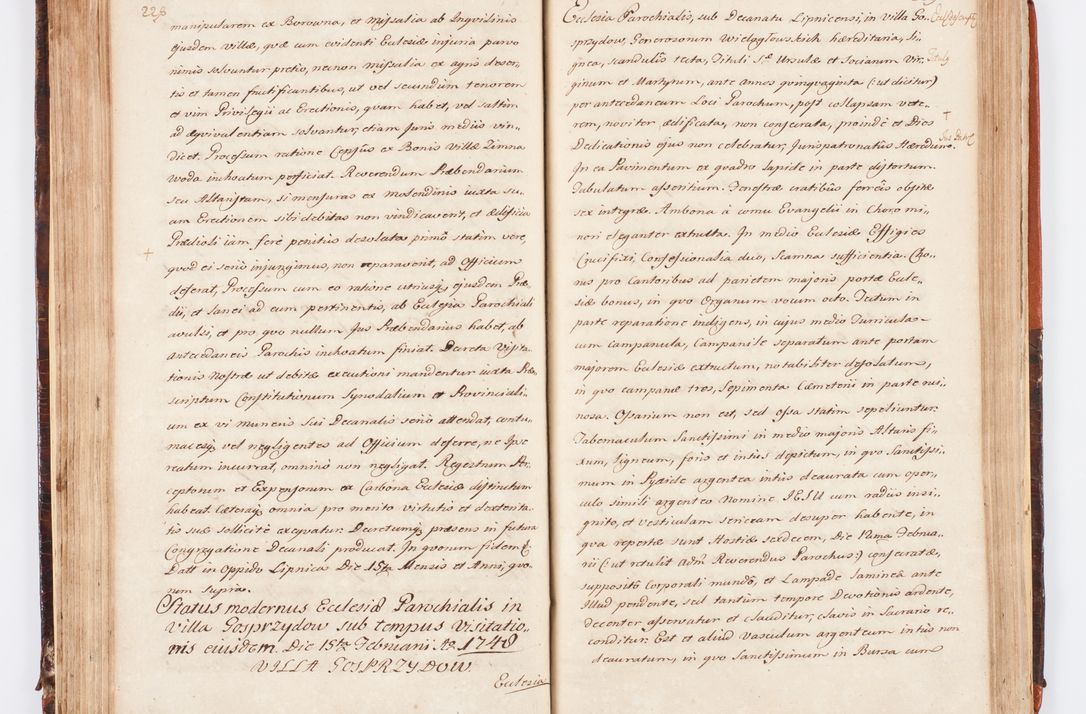 228
manipularem ex Borowna, et Missalia ab Inquilinis
ejusdem Villæ, quæ cum evidenti Ecclesiæ injuria parvo
nimis solvuntur pretio, necnon Missalia ex agris deser„
tis et tamen fructificantibus, ut vel secundum tenorem
et vim Privilegii ac Erectionis, quam habet, vel saltim
ad æquivalentiam solvantur, etiam Juris mediis vin„
dicet. Processum ratione Censûs ex Bonis Villæ Zimna
Woda inchoatum perficiat. Reverendum Præbendarium
seu Altaristam, si mensuras ex Molendinis iuxta su„
am Erectionem sibi debitas non vindicaverit, et ædificia
Prædioli iam ferè penitus desolata primô statim vere,
quod ei seriò injungimus, non reparaverit, ad Officium
deferat, Processum cum eo ratione utriusq; ejusdem Præ„
dii, et Lanei ad eum pertinentis, ab Ecclesia Parochiali
avulsi, et pro quo nullum Jus Præbendarius habet, ab
antecedaneis Parochis inchoatum finiat. Decreta Visita„
tionis Nostræ ut debitæ executioni mandentur iuxta Præ„
scriptum Constitutionum Synodalium et Provinciali„
um ex vi muneris Sui Decanalis seriò attendat, contu„
macesq; vel negligentes ad Officium deferre, ne Ipse
reatum incurrat, omninò non negligat. Regestrum Per„
ceptorum et Expensorum ex Carbona Ecclesiæ distinctum
habeat. Cæteraq; omnia pro merito virtutis et dexterita„
tis suæ sollicitè exequatur. Decretumq; præsens in futura
Congregatione Decanali producat. In quorum fidem &c.
Datt in Oppido Lipnica Die 15ta Mensis et Anni, quo„
rum supra.
Status modernus Ecclesiæ Parochialis in
Villa Gosprzydow sub tempus Visitatio„
nis eiusdem. Die 15ta Februarii Aō 1748
VILLA GOSPRZYDOW.
Ecclesia
Ecclesia Parochialis, sub Decanatu Lipnicensi, in Villa Go„
sprzydow, Generosorum Wielogłowskich hæreditaria, li„
gnea, scandulis tecta, Tituli S. Ursulæ et Sociarum Vir„
ginum et Martyrum, ante annos quinquaginta (ut dicitur)
per antecedaneum Loci Parochum, post collapsam vete„
rem, noviter ædificata, non consecrata, proindè et Dies
Dedicationis ejus non celebratur, Jurispatronatus Hæredum.
In ea Pavimentum ex quadro lapide in parte distortum.
Tabulatum asseritium. Fenestræ cratibus ferreis obsitæ
sex integræ. Ambona à cornu Evangelii in Choro mi„
nori eleganter extructa. In medio Ecclesiæ Effigies
Crucifixi, Confessionalia duo, Scamna sufficientia. Cho„
rus pro Cantoribus ad parietem majoris portæ Eccle„
siæ bonus, in quo Organum vocum octo. Tectum in
parte reparatione indigens, in cujus medio Turricula
cum campanula, Campanile separatum ante portam
majorem Ecclesiæ extructum, notabiliter desolatum,
in quo campanæ tres, Sepimenta Cæmeterii in parte rui„
nosa. Ossarium non est, sed ossa statim sepeliuntur.
Tabernaculum Sanctissimi in medio majoris Altaris fi„
xum, ligneum, foris et intus depictum, in quo Sanctissi„
mum in Pyxide argentea intus deaurata cum oper„
culo simili argenteo Nomine IESU cum radiis insi„
gnito, et vesticulam sericeam desuper habente, in
qua repertæ sunt Hostiæ sexdecem, Die Prima Februa„
rii (ut retulit adm̃ Reverendus Parochus) consecratæ,
supposito Corporali mundo, et Lampade laminea ante
Illud pendente, sed tantum tempore Devotionis ardente,
decenter asservatur et clauditur, clavis in Sacrario re„
conditur. Est et aliud Vasculum argenteum intus non
deauratum, in quo Sanctissimum in Bursa cum
Tituly